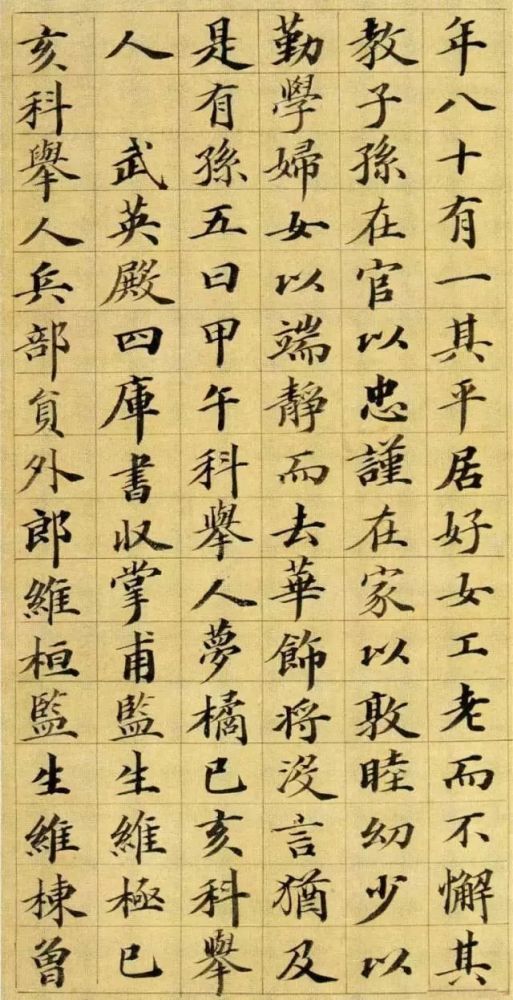 年八十有一其平居好女工老而不懈其
教子孫在官以忠謹在家以敦睦幼少以
勤學婦女以端靜而去華飾將没言猶及
是有孫五曰甲午科舉人夢橘已亥科舉
人武英殿四庫書收掌甫監生維極已
亥科舉人兵部負外郎維桓監生維棟曾